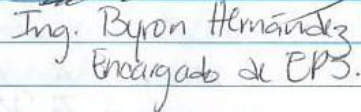 Ing. Byron Hernández
Encargado de EPS.